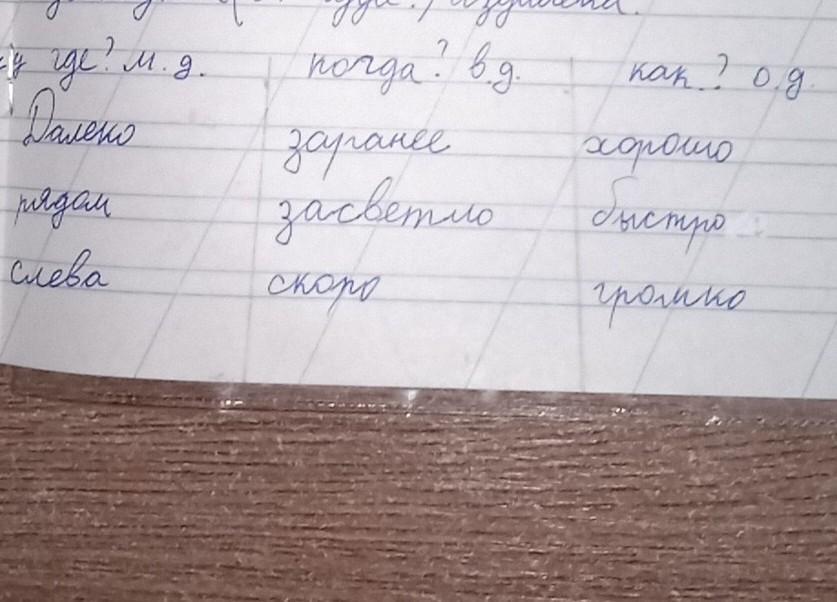 где? м.д. когда? в.д. как? о.д.
Далеко заранее хорошо
рядом засветло быстро
слева скоро громко